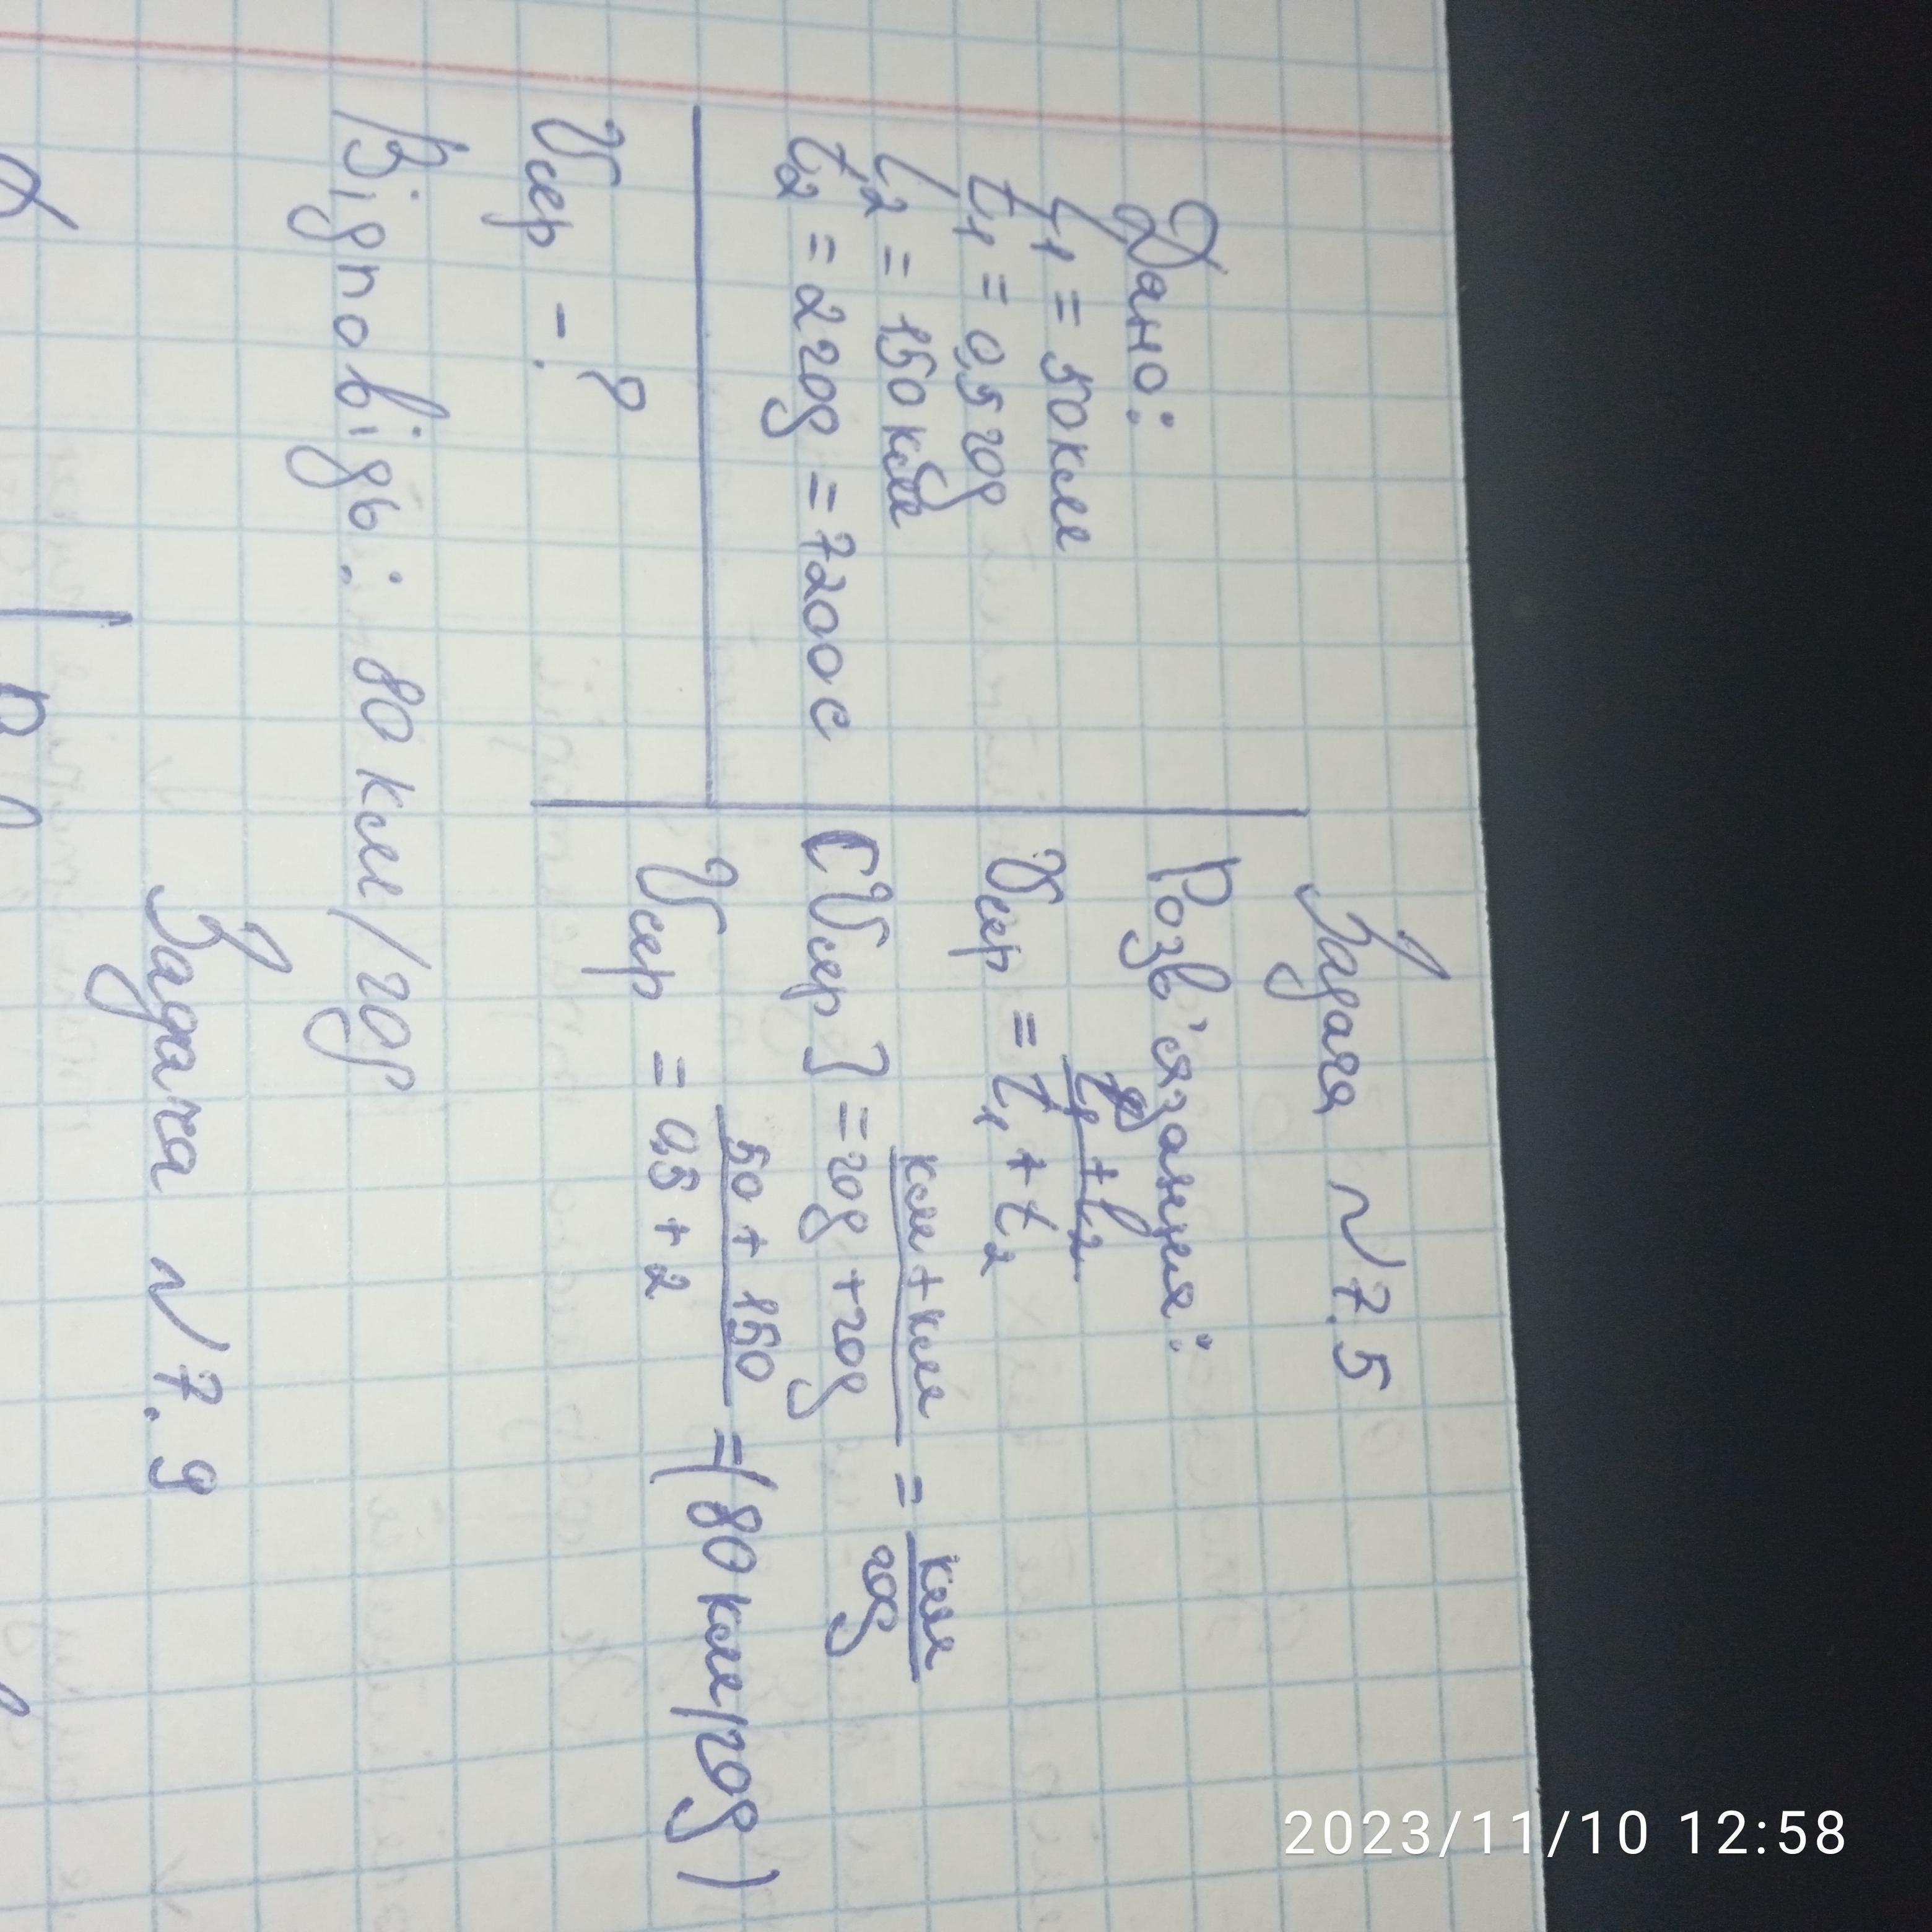 Задача №7.5
Дано:
l₁ = 50км
t₁ = 0,5 год
l₂ = 150 км
t₂ = 2 год = 7200 с
Vсер - ?
Розв'язання:
Vсер = l₁ + l₂ / t₁ + t₂
[Vсер] = км + км / год + год = км / год
Vсер = 50 + 150 / 0,5 + 2 = (80 км/год)
Відповідь: 80 км/год
Задача №7.9
2023/11/10 12:58